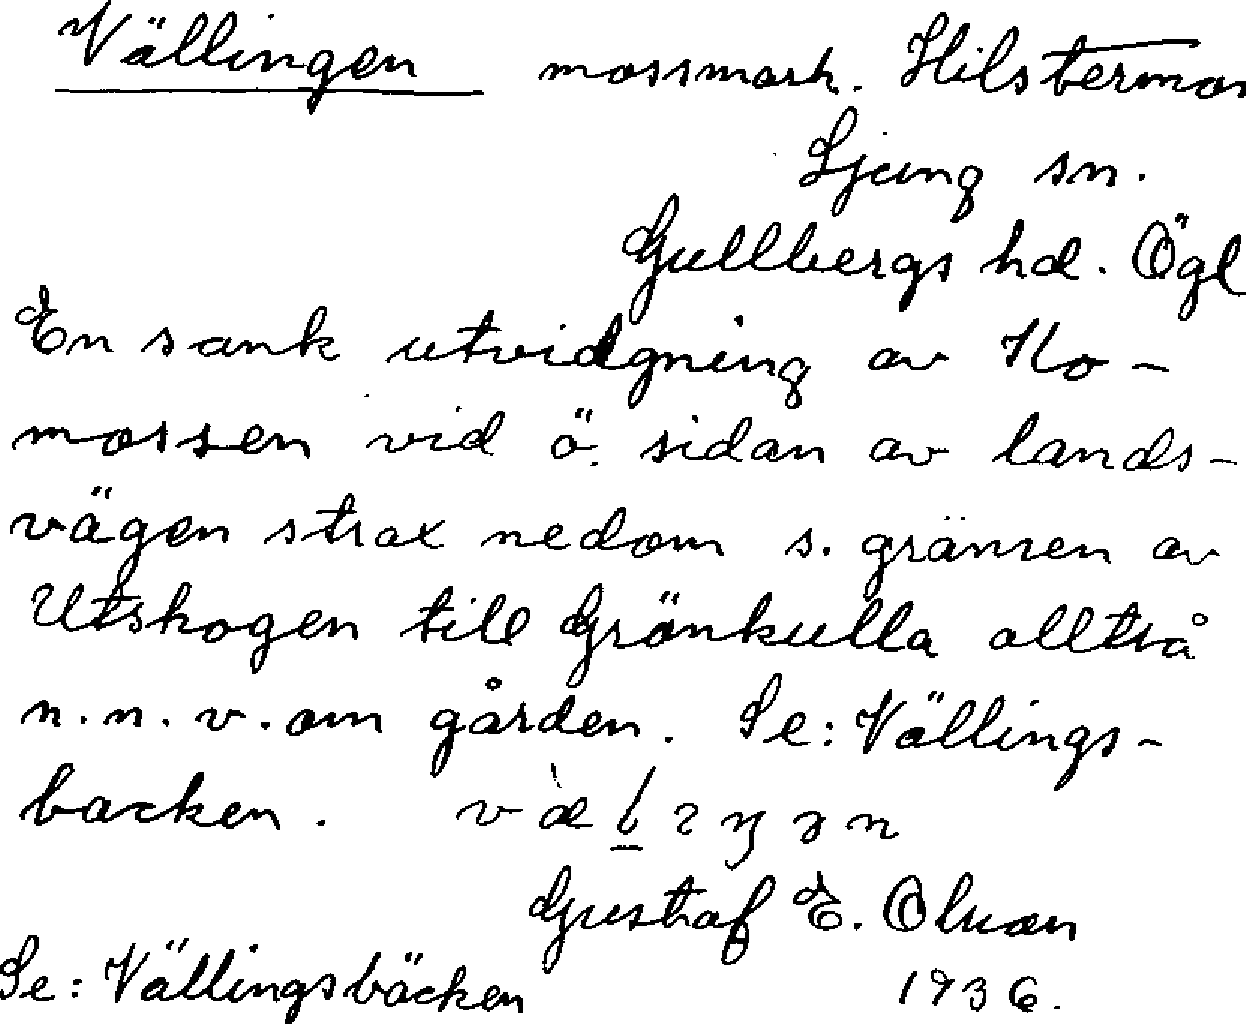 Vällingen mossmark. Hilstermon
Ljung sn.
Gullbergs hd. Ögl
En sank utvidgning av Ko-
mossen vid ö. sidan av lands-
vägen strax nedom s. gränsen av
Utskogen till Grönkulla alltså
n.n.v. om gården. Se: Vällings-
backen.
Gustaf E. Olson
Se: Vällingsbäcken 1936.